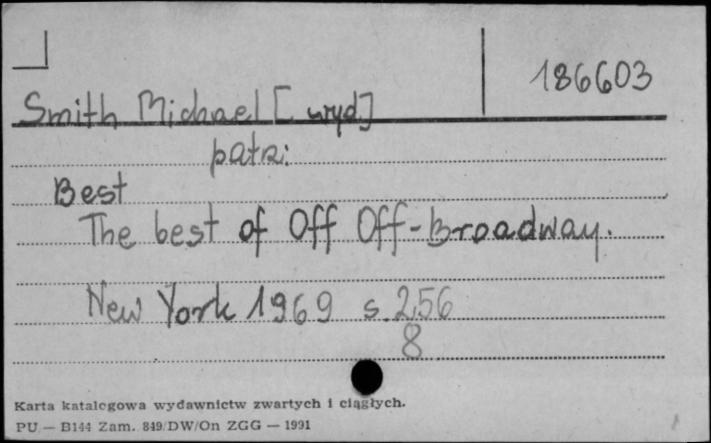 186603
Smith Michael [wyd]
patrz:
Best
The best of Off Off-Broadway.
New York 1969 s. 256
8
Karta katalogowa wydawnictw zwartych i ciągłych.
PU — B144 Zam. 849/DW/On ZGG — 1991